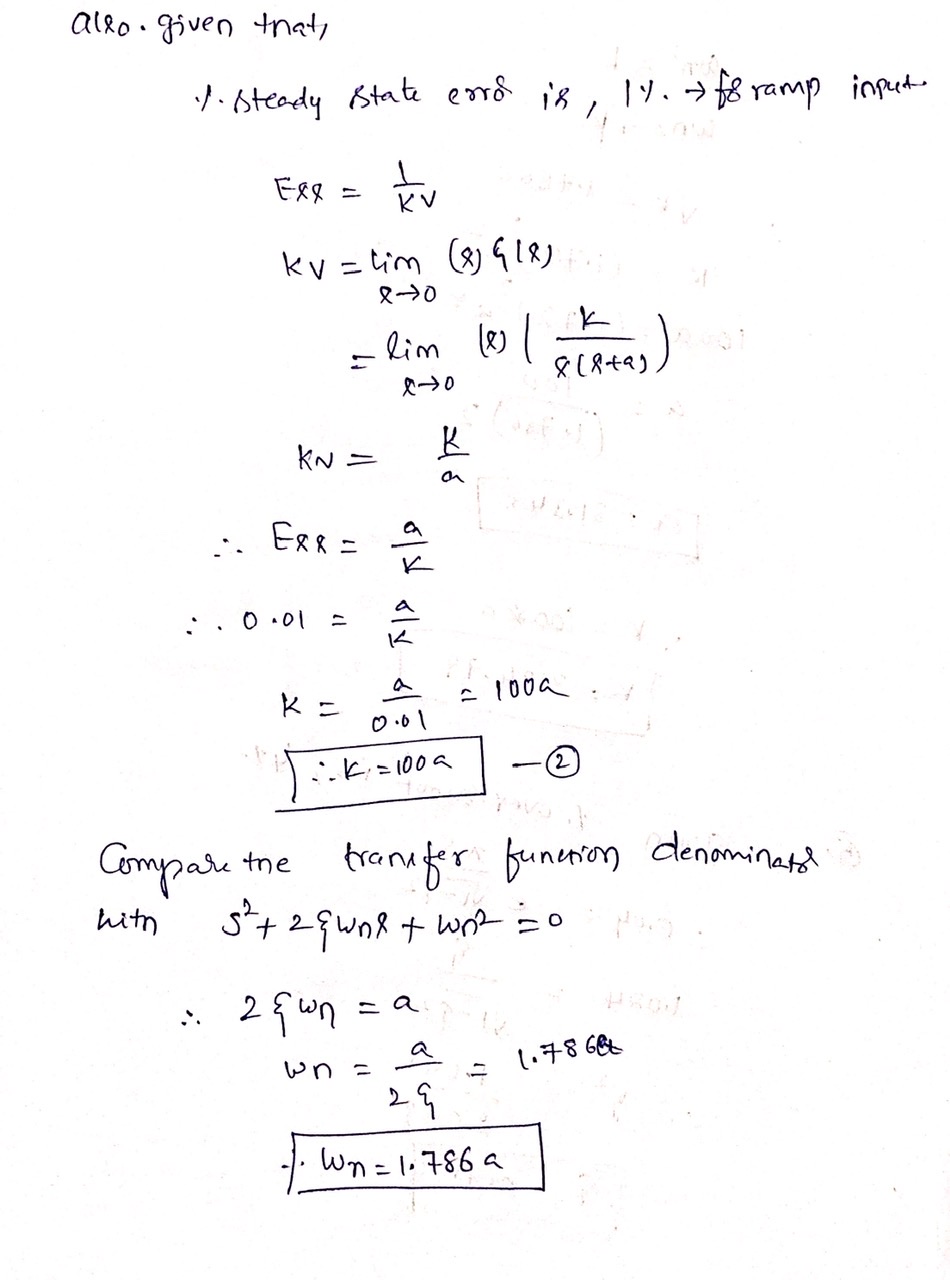 also. given that,
%. steady state error is, 1%. → for ramp input
Ess = 1/KV
KV = lim s→0 (s) G(s)
= lim s→0 (s) ( K / s(s+a) )
KV = K/a
∴ Ess = a/K
∴ 0.01 = a/K
K = a/0.01 = 100a
∴ K = 100a — ②
Compare the transfer function denominator
with S² + 2ξωns + ωn² = 0
∴ 2ξωn = a
ωn = a/2ξ = 1.786a
∴ Wn = 1.786 a